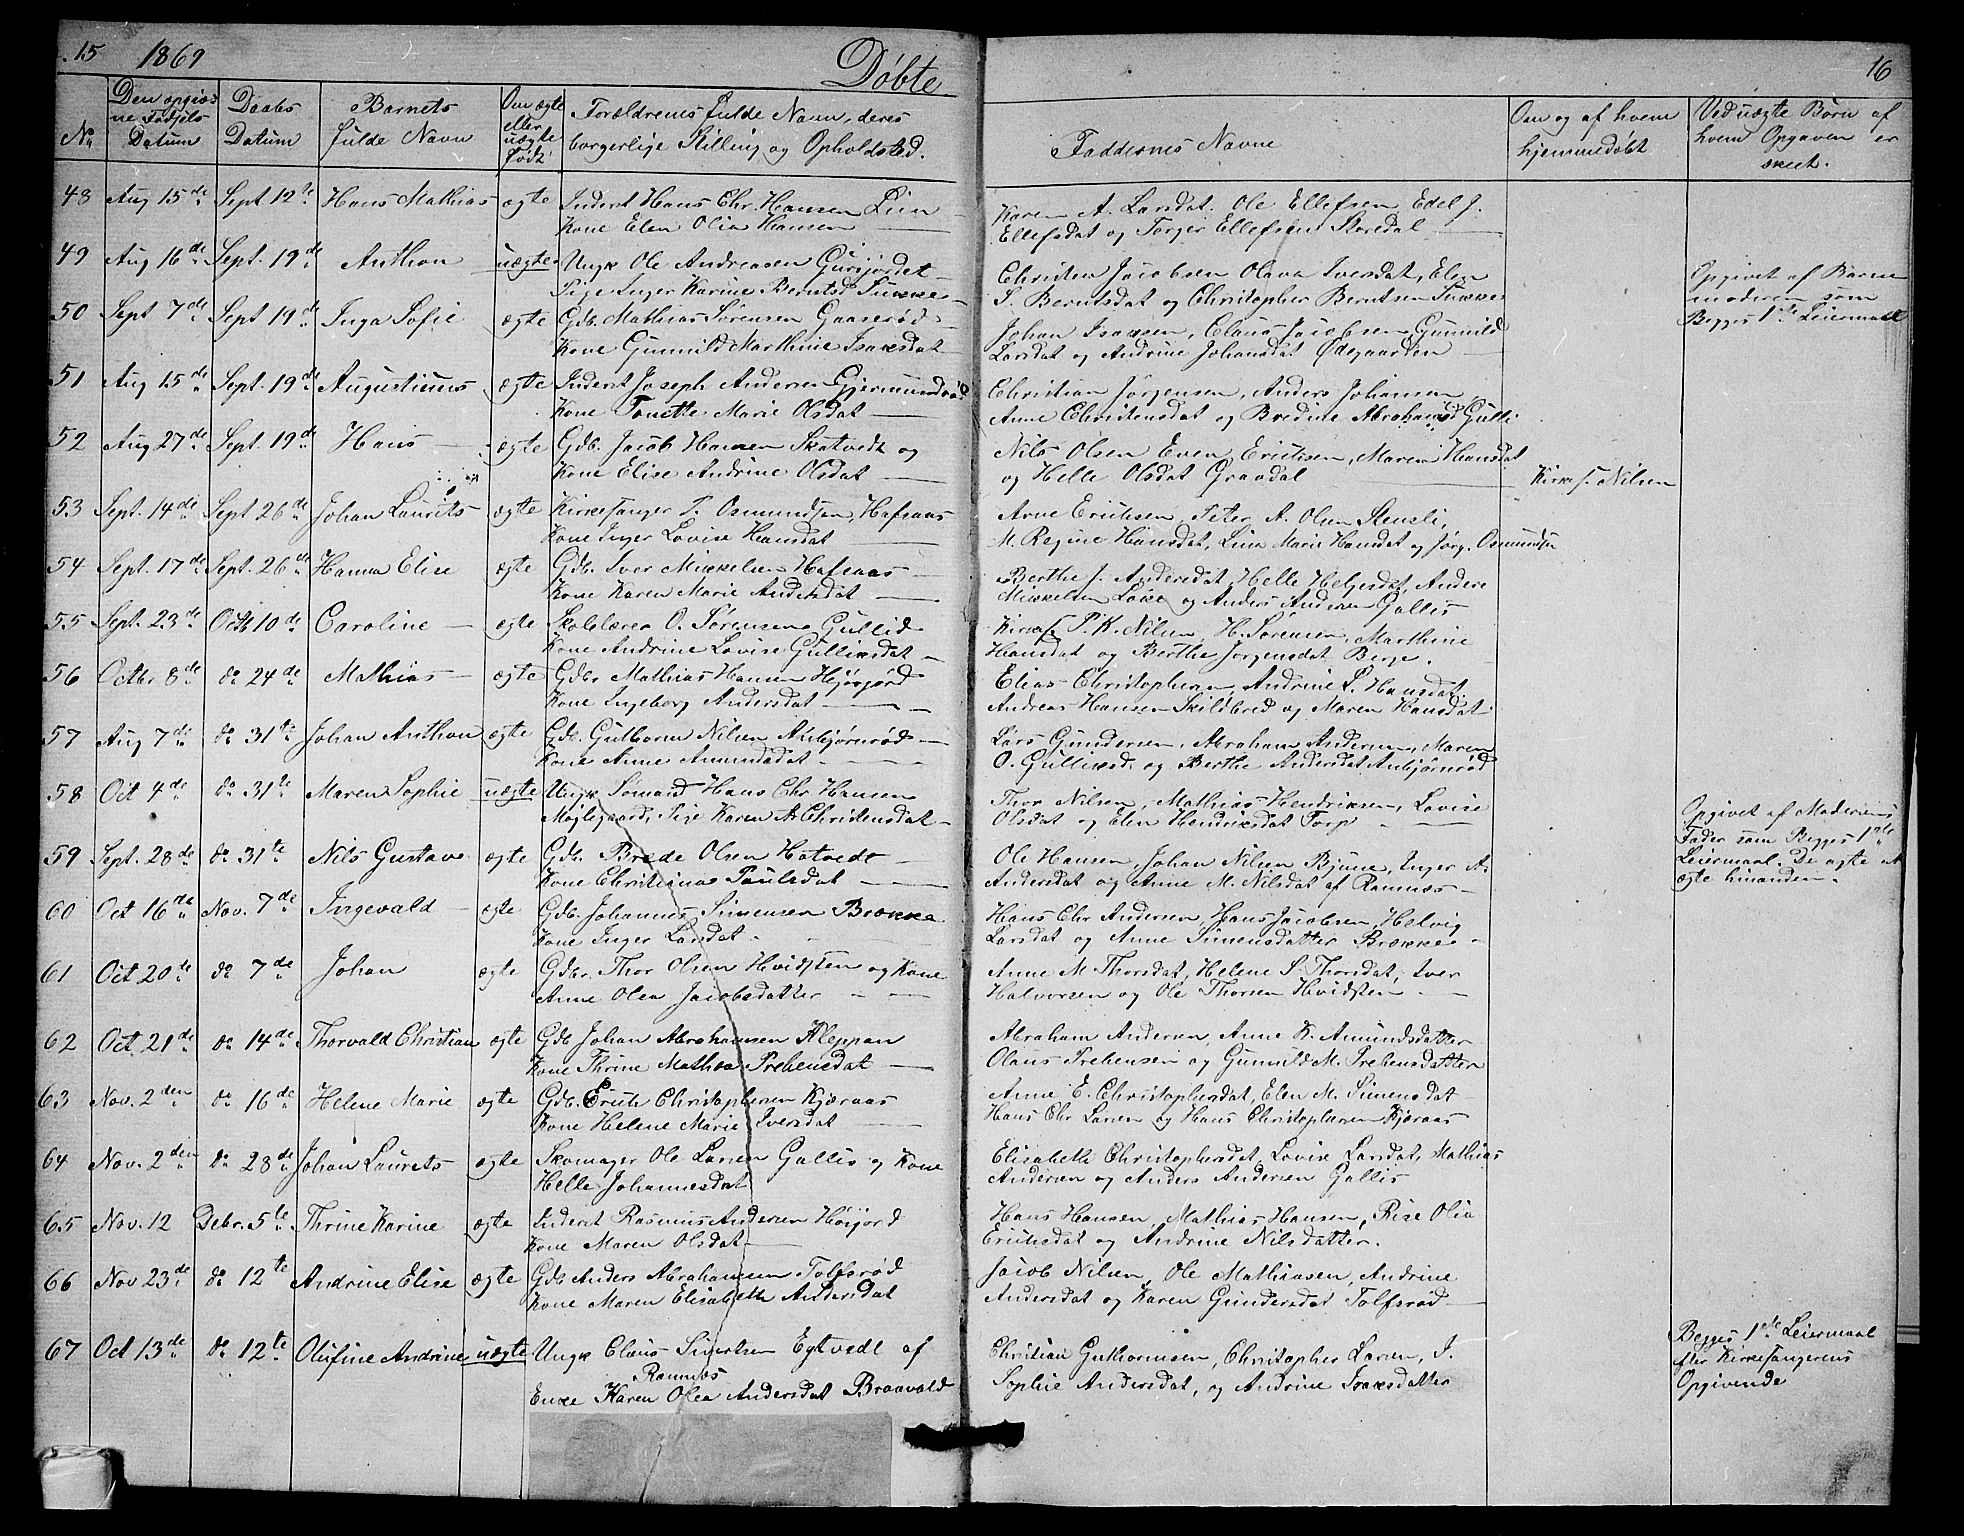 15 1869 Døbte
No
Den opgiv=
ne Fødsels
Datum
Daabs
Datum
Barnets
fulde Navn
Om ægte
eller
uægte
født
Forældrenes fulde Navn, deres
borgerlige Stilling og Opholdsted.
48 Aug 15de Sept 12te Hans Mathias ægte Inderst Hans Chr. Hansen Lien
Kone Elen Olia Hansen
49 Aug 16de Sept. 19de Anthon uægte Ungk Ole Andreasen
Pige Inger Karine Berntsd
50 Sept 7de Sept 19de Inga Sofie ægte Gdb. Mathias Sørensen Gaaserød
Kone Gunnild Marthinie Isaksdat
51 Aug 15de Sept. 19de Augustinus ægte Inderst Joseph Andersen Gjermundrød
Kone Tonette Marie Olsdat
52 Aug 27de Sept. 19de Hans ægte Gdb. Jacob Hansen Skatvedt og
Kone Elise Andrine Olsdat
53 Sept. 14de Sept 26de Johan Laurits ægte Kirkesanger P. Osmundsen, Hafsaas
Kone Inger Lovise Hansdat
54 Sept. 17de Sept. 26de Hanna Elise ægte Gdb. Iver Mikkelsen Hafsaas
Kone Karen Marie Andersdat
55 Sept. 23de Octb 10de Caroline ægte Skolelærer O. Sørensen Gullid
Kone Andrine Lovise Gulliksdat
56 Octbr 8de do 24de Mathias ægte Gdb. Mathias Hansen
Kone Ingeborg Andersdat
57 Aug 7de do 31te Johan Anthon ægte Gdb. Gutborm Nilsen Anbjørnrød
Kone Anne Amundsdat
58 Oct 4de do 31te Maren Sophie uægte Ungk Sømand Hans Chr Hansen
Møjlegaard, Pige Karen A. Christensdat
59 Sept. 28de do 31te Nils Gustav ægte Gdb. Brede Olsen Hotvedt
Kone Christiane Paulsdat
60 Oct 16de Nov. 7de Ingevald ægte Gdb. Johannes Simensen Brække
Kone Inger Larsdat
61 Oct 20te do 7de Johan ægte Gdbr. Thor Olsen Hvidsten og Kone
Anne Olea Jacobsdatter
62 Oct. 21de do 14de Thorvald Christian ægte Gdb Johan Abrahamsen Kleppan
Kone Thrine Mathea Prebensdat
63 Nov. 2den do 16de Helene Marie ægte Gdb. Erich Christophersen Kjæraas
Kone Helene Marie Iversdat
64 Nov. 2den do 28de Johan Laurets ægte Skomager Ole Larsen Gallis og Kone
Helle Johannesdat
65 Nov. 12 Debr. 5te Thrine Karine ægte Inderst Rasmus Andersen Høijord
Kone Maren Olsdat
66 Nov. 23de do 12te Andrine Elise ægte Gdb Anders Abrahamsen Tolfsrød
Kone Maren Elisabeth Andersdat
67 Oct 13de do 12te Olufine Andrine uægte Ungk Claus Sivertsen Egtvedt af
Ramnæs
Enke Karen Olea Andersdat Braavald
16
Faddernes Navne
Om og af hvem
hjemmedøbt
Ved uægte Børn af
hvem Opgaven er
skeet.
Karen A. Larsdat. Ole Ellefsen Edel J.
Ellefsdat og Torger Ellefsen Storedal
Christen Jacobsen Olava Iversdat, Elen
S. Berntsdat og Christopher Berntsen
Opgivet af Barne
moderen som
Begges 1ste Leiermaal
Johan Isaksen, Claus Jacobsen Gunnild
Larsdat og Andrine Johansdat Ødegaarden
Christian Jørgensen, Anders Johansen
Anne Christensdat og Bredine Abrahamsd Gulli
Nils Olsen Even Erichsen, Maren Hansdat
og Helle Olsdat Graadal
Kirkes. Nilsen
Arne Erichsen, Peter A. Olsen Stensli,
M. Regine Hansdat, Lina Marie Hansdat og Jørg. Osmundsen
Berthe J. Andersdat Helle Helgesdat, Anders
Mikkelsen og Anders Andersen Gallis
Kirkes P. K. Nilsen, H. Sørensen, Marthine
Hansdat og Berthe Jørgensdat Berge.
Elias Christophersen, Andrine L. Hansdat
Andreas Hansen Skildbred og Maren Hansdat
Lars Gundersen, Abraham Andersen, Maren
O. Gulliksd. og Berthe Andersdat Anbjørnrød
Thor Nilsen, Mathias Hendriksen, Lovise
Olsdat og Elen Hendriksdat Torp
Opgivet af Moderens
Fader som Begges 1ste
Leiermaal. De agte at
ægte hinanden.
Ole Hansen, Johan Nilsen Bjune, Inger A.
Andersdat og Anne M. Nilsdat af Ramnæs
Hans Chr Andersen, Hans Jacobsen, Helvig
Larsdat og Anne Simensdatter Brække
Anne M Thorsdat, Helene S. Thorsdat, Iver
Halvorsen og Ole Thorsen Hvidsten
Abraham Andersen, Anne K. Amundsdatter
Olaus Prebensen og Gunnild M. Prebensdatter
Anne E. Christophersdat, Elen M. Simensdat
Hans Chr Larsen og Hans Christophersen Kjæraas
Elisabeth Christophersdat, Lovise Larsdat, Mathias
Andersen og Anders Andersen Gallis
Hans Hansen, Mathias Hansen, Rise Olia
Erichsdat og Andrine Nilsdatter.
Jacob Nilsen, Ole Mathiasen, Andrine
Andersdat og Karen Gundersdat Tolfsrød
Christian Guthormsen, Christopher Larsen, J.
Sophie Andersdat, og Andrine Isaksdatter
Begges 1ste Leiermaal
efter Kirkesangerens
Opgivende